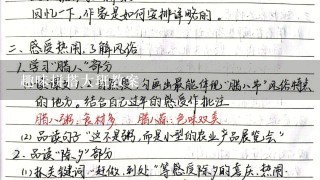 回忆一下,作家是如何安排详略的。
二、感受热闹,了解风俗
1、学习“腊八”部分
勾画出最能体现“腊八节”风俗特点
的地方。结合自己过年的感受作批注
腊八粥:食材多 腊八蒜:色味双美
(2)品读句子“这不是粥,而是小型的农业产品展览会”
2、品读“除夕”部分
(1)抓关键词“赶做、到处”等感受除夕的喜庆、热闹
趣味搭搭大班教案